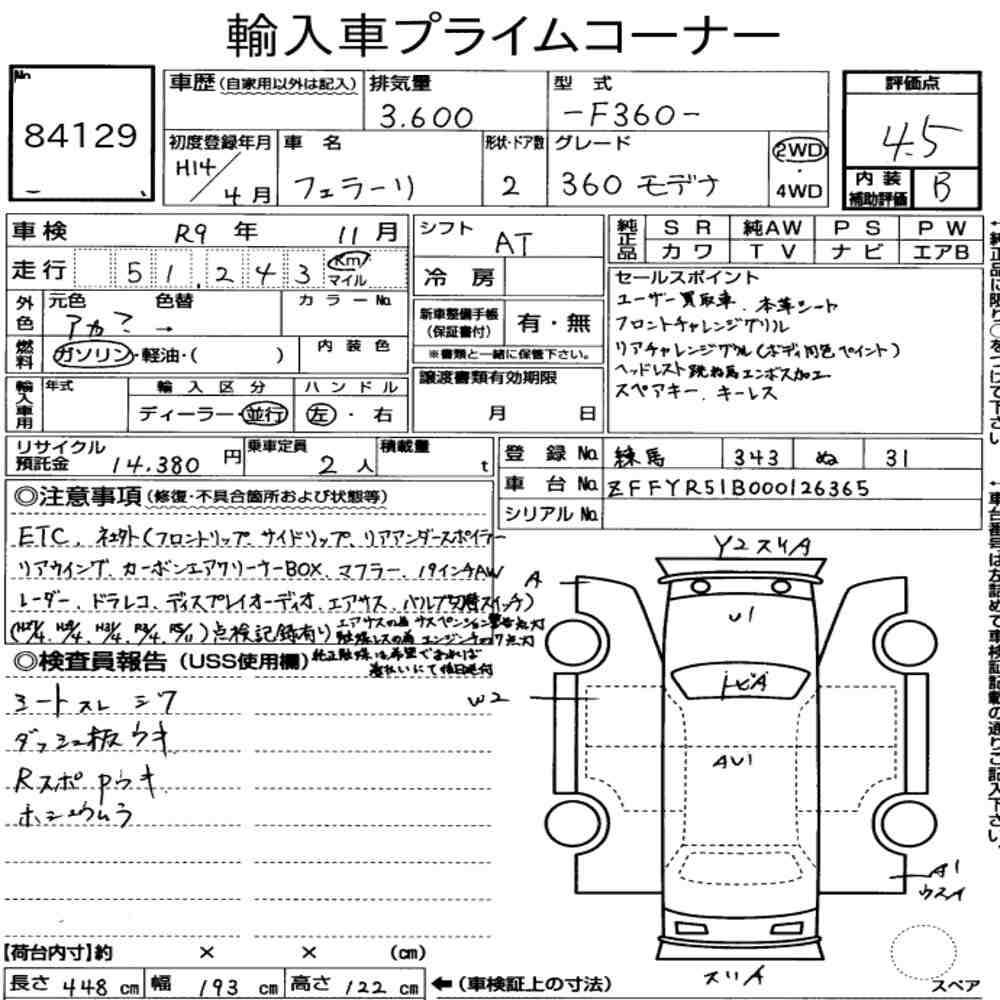 輸入車プライムコーナー
No.
84129
車歴(自家用以外は記入)
排気量
3.600
型 式
-F360-
評価点
4.5
初度登録年月
H14/4月
車 名
フェラーリ
形状・ドア数
2
グレード
360 モデナ
2WD
・
4WD
内 装
補助評価
B
車検 R9 年 11 月
走行 51,243 Km
マイル
外色
元色 色替
アカ? →
カラーNo.
燃料
ガソリン・軽油・( )
内 装 色
輸入車用
年式
輸 入 区 分
ディーラー・並行
ハ ン ド ル
左 ・ 右
シフト
AT
冷 房
新車整備手帳
(保証書付)
有・無
※書類と一緒に保管下さい。
譲渡書類有効期限
月 日
純正品
S R 純AW P S P W
カ ワ T V ナ ビ エアB
セールスポイント
ユーザー買取車、本革シート
フロントチャレンジグリル
リアチャレンジグリル(ボディ同色ペイント)
ヘッドレスト跳ね馬エンボス加工
スペアキー、キーレス
リサイクル
預託金
14.380 円
乗車定員
2 人
積載量
t
登 録 No. 練馬 343 ぬ 31
車 台 No. ZFFYR51B000126365
シリアル No.
◎注意事項(修復・不具合箇所および状態等)
ETC、社外(フロントリップ、サイドリップ、リアアンダースポイラー
リアウイング、カーボンエアクリーナーBOX、マフラー、19インチAW
レーダー、ドラレコ、ディスプレイオーディオ、エアサス、バルブ切替スイッチ)
点検記録有り
エアサスの為 サスペンション警告点灯
触媒レスの為 エンジンチェック点灯
純正触媒は希望であれば
着払いにて後日送付
◎検査員報告(USS使用欄)
シートスレ シワ
ダッシュ板ウキ
Rスポ Pウキ
ホシウムラ
Y2スリA
A
U1
トビA
W2
AU1
A1
ウスイ
スリA
スペア
【荷台内寸】約 × × (cm)
長さ 448 cm 幅 193 cm 高さ 122 cm
←(車検証上の寸法)
←純正品に限り○をつけて下さい
←車台番号は左詰めで車検証記載の通りご記入下さい。